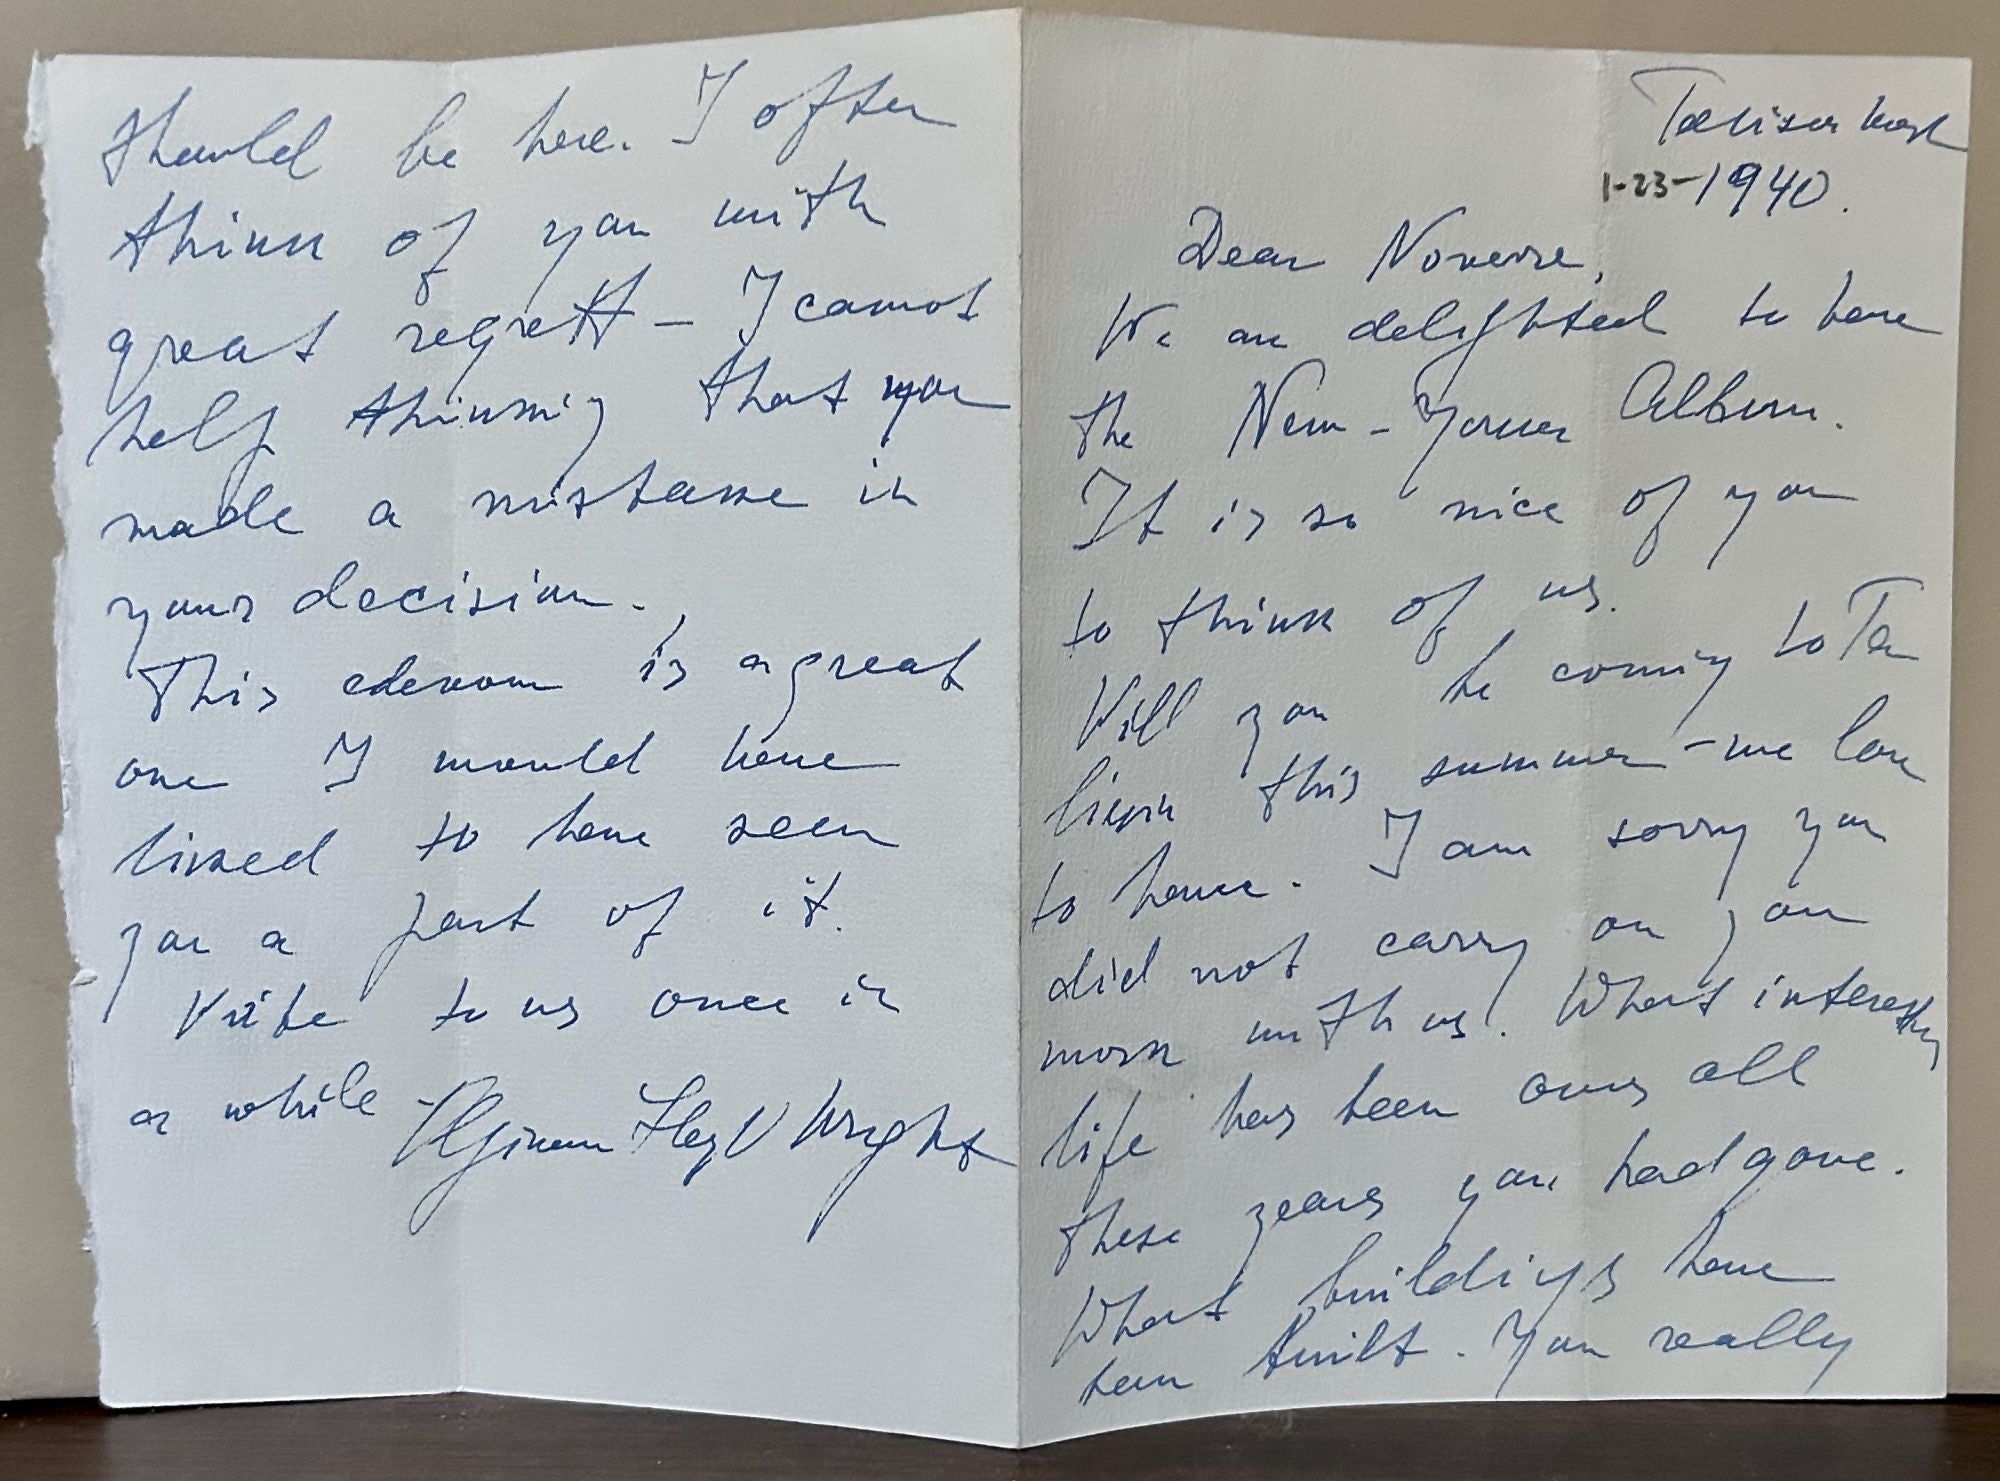 Taliesin West
1-23-1940.
Dear Noverre,
We are delighted to have
the New-Yorker Album.
It is so nice of you
to think of us.
Will you be coming to Ta
liesin this summer - we love
to have. I am sorry you
did not carry on your
work with us! What interesting
life has been ours all
these years you had gone.
What buildings have
been built. You really
should be here. I often
think of you with
great regrett - I cannot
help thinking that you
made a mistake in
your decision.
This is a great
one I would have
liked to have seen
you a part of it.
Write to us once in
a while - Olgivanna Lloyd Wright